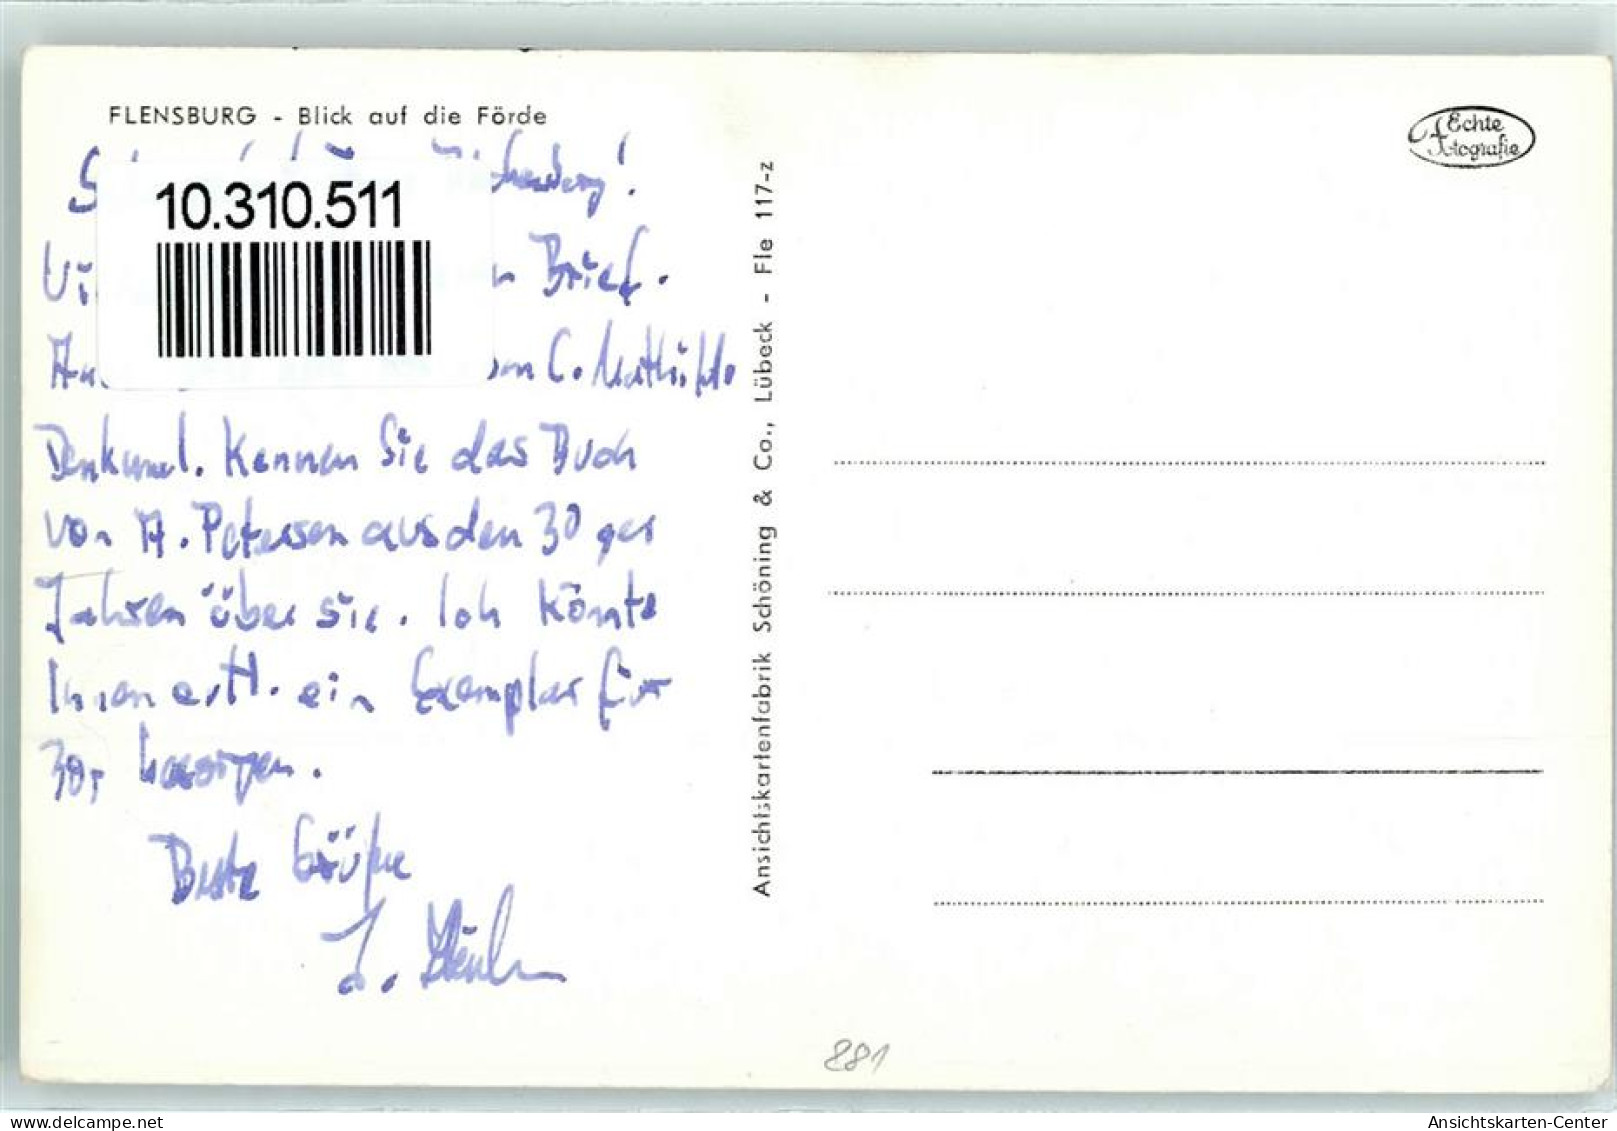 FLENSBURG - Blick auf die Förde
Echte
Fotografie
10.310.511
Brief.
C.
Denkmal. Kennen Sie das Buch
von A. Petersen aus den 30 ger
Jahren über sie. Ich könnte
Ihnen evtl. ein Exemplar für
30,
Beste Grüße
Ansichtskartenfabrik Schöning & Co., Lübeck - Fle 117-z
881
Ansichtskarten-Center